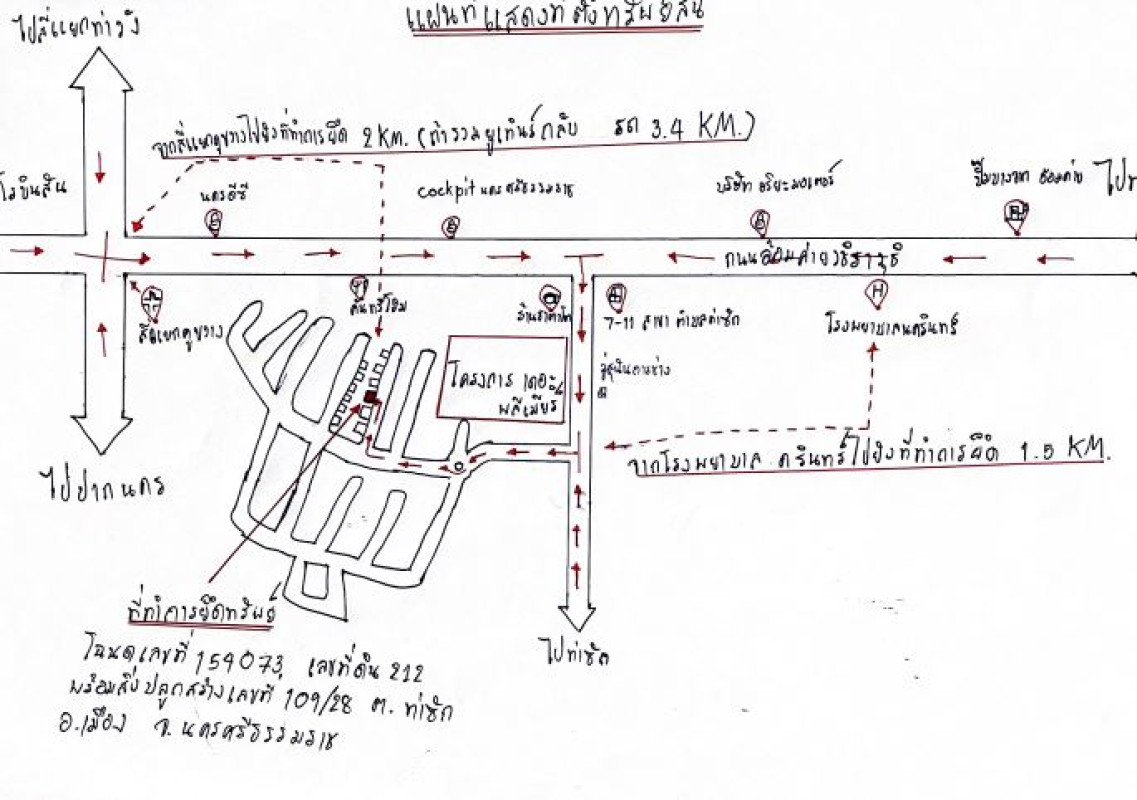 แผนที่แสดงที่ตั้งทรัพย์สิน
ไปสี่แยกท่าวัง
จากสี่แยกคูขวางไปยังที่ทำการยึด 2 KM. (ถ้ารวมยูเทิร์นกลับ รถ 3.4 KM.)
โรบินสัน
นครอีซี
cockpit นครศรีธรรมราช
บริษัท อริยะมอเตอร์
ปั๊มบางจาก อ้อมค่าย
ถนนอ้อมค่ายวชิราวุธ
สี่แยกคูขวาง
คันทรีโฮม
7-11 สาขา ตำบลท่าซัก
โรงพยาบาลนครินทร์
โครงการ เดอะ
พรีเมียร์
จากโรงพยาบาล นครินทร์ไปยังที่ทำการยึด 1.5 KM.
ไปปากนคร
ที่ทำการยึดทรัพย์
ไปท่าซัก
โฉนดเลขที่ 154073 เลขที่ดิน 212
พร้อมสิ่งปลูกสร้างเลขที่ 109/28 ต. ท่าซัก
อ.เมือง จ.นครศรีธรรมราช